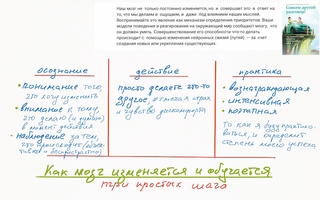 Наш мозг не только постоянно изменяется, но и совершает это в ответ на
то, что мы делаем и ощущаем, и даже под влиянием наших мыслей.
Воспринимайте это явление как механизм определения приоритетов. Ваши
модели поведения и реагирования на окружающий мир сообщают мозгу, что
он должен уметь. Совершенствование его способности что-то делать
происходит с помощью изменения нейронных связей (путей) — за счет
создания новых или укрепления существующих.
осознание
действие
практика
понимание того,
что хочу изменить
внимание к тому,
что делаю (и думаю)
в момент действия
наблюдение за тем,
что происходит
просто делаете это по-
другое, отметая страх
и чувство дискомфорта
вознаграждающая
интенсивная
поэтапная
То как я буду практико-
ваться, и определит
степень моего успеха
Как мозг изменяется и обучается
три простых шага